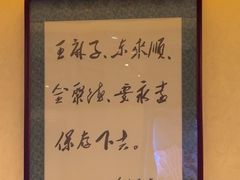 王麻子、东来顺、
全聚德、要永远
保存下去。